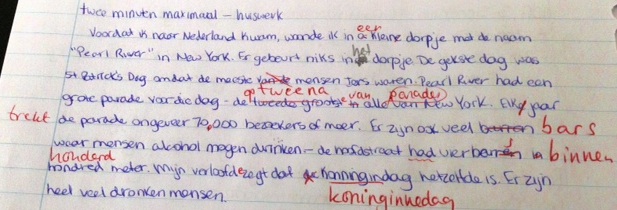 twee minuten maximaal - huiswerk
een
Voordat ik naar Nederland kwam, woonde ik in a kleine dorpje met de naam
"Pearl River" in New York. Er gebeurt niks in het dorpje. De gekste dag was
St Patrick's Dag omdat de meeste van de mensen Iers waren. Pearl River had een
op twee na van parades
grote parade voor die dag - de tweede grootste in alle van New York. Elk jaar
trekt de parade ongeveer 70,000 bezoekers of meer. Er zijn ook veel barren bars
waar mensen alcohol mogen drinken - de hoofdstraat had vier barren in binnen
honderd
hondred meter. Mijn verloofde zegt dat de konningindag hetzelfde is. Er zijn
heel veel dronken mensen. koninginnedag